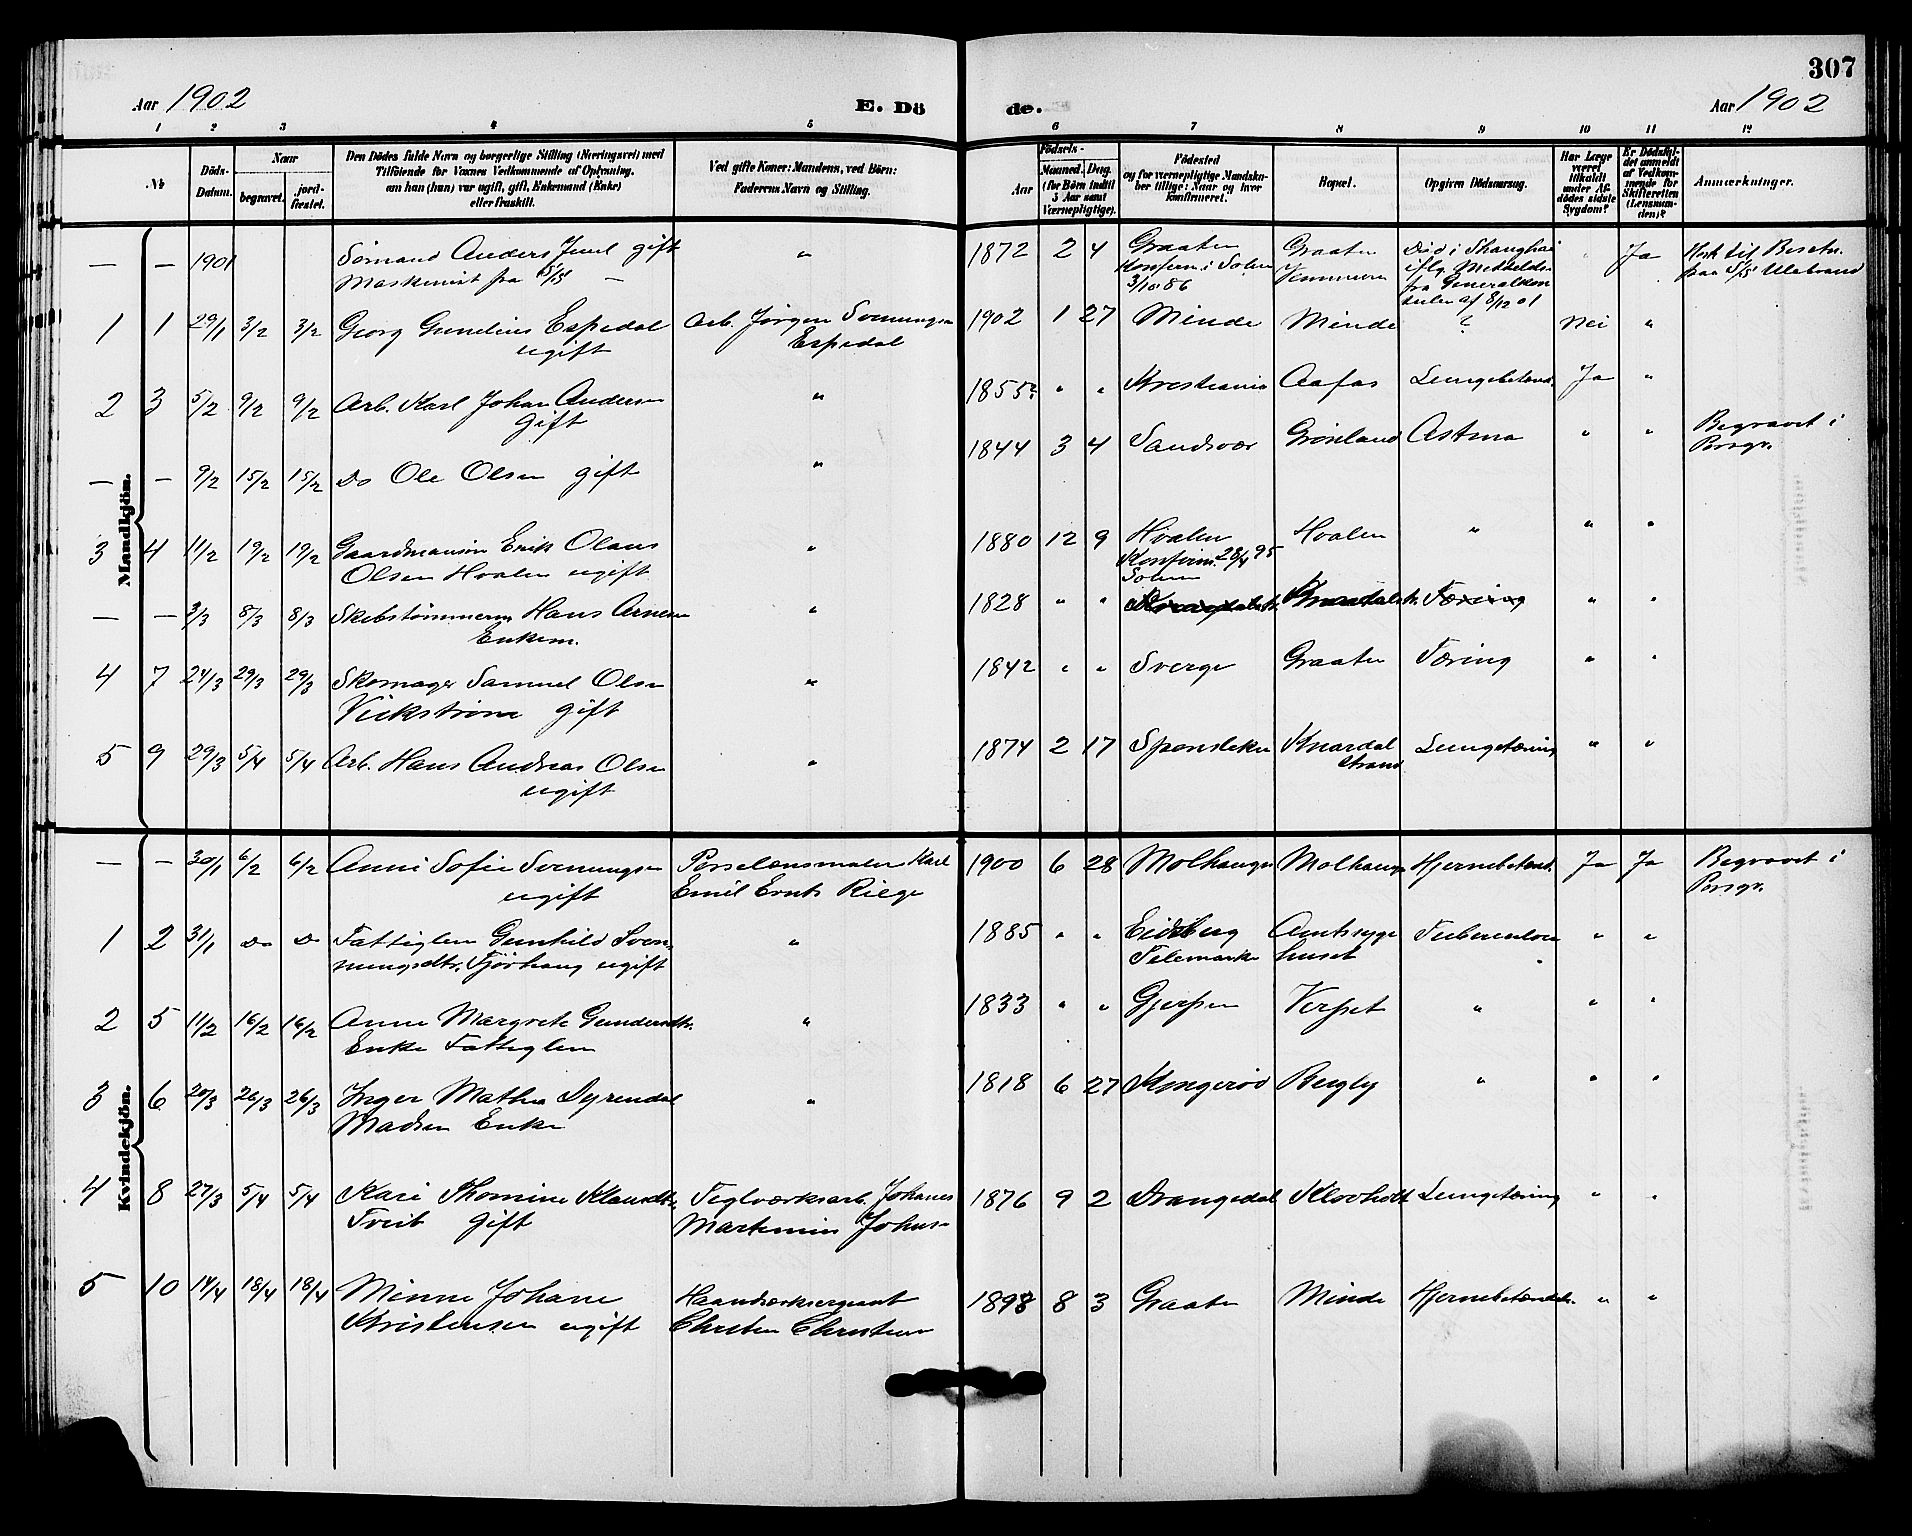 307
Aar 1902
E. Dö
de.
Aar 1902
1 2 3 4 5 6 7 8 9 10 11 12
№
Döds-
Datum.
Naar
begravet.
jord-
fæstet.
Den Dödes fulde Navn og borgerlige Stilling (Næringsvei) med
Tilföiende for Voxnes Vedkommende af Oplysning,
om han (hun) var ugift, gift, Enkemand (Enke)
eller fraskilt.
Ved gifte Koner: Mandens, ved Börn:
Faderens Navn og Stilling.
Födsels-
Aar
Maaned. Dag.
(for Börn indtil
5 Aar samt
Værnepligtige).
Födested
og for værnepligtige Mandska-
ber tillige: Naar og hvor
konfirmeret.
Bopæl.
Opgiven Dödsaarsag.
Har Læge
været
tilkaldt
under Af-
dödes sidste
Sygdom?
Er Dödsfal-
det anmeldt
af Vedkom-
mende for
Skifteretten
(Lensman-
den)?
Anmærkninger.
Mandkjön.
— — 1901 Sömand Anders Juul gift " 1872 2 4 Graaten Graaten Död i Shanghai " Ja
Maskinist fra 5/5 — Konfirm. i Solum iflg. Meddelds.
3/10 86 fra Generalkon
sulen af 8/12 01
1 1 29/1 3/2 3/2 Georg Gunelius Espedal Arb. Jørgen Svenungsen 1902 1 27 Minde Minde ? Nei "
ugift Espedal
2 3 5/2 9/2 9/2 Arb. Karl Johan Andersen " 1855? " " Kristiania Aafos Lungebetænd. Ja "
gift
— — 9/2 15/2 15/2 Do Ole Olsen gift " 1844 3 4 Sandsvær Grönland Astma " " Begravet i
Porsgr.
3 4 11/2 19/2 19/2 Gaardmansön Erik Olaus " 1880 12 9 Hvalen Hvalen " " "
Olsen Hvalen ugift Konfirm. 28/4 95
Solum
— — 3/3 8/3 8/3 Skibstömmerm Hans Arnesen " 1828 " " Tæring " "
Enkem.
4 7 24/3 29/3 29/3 Skomager Samuel Olsen " 1842 " " Sverge Graaten Tæring " "
Vickström gift
5 9 29/3 5/4 5/4 Arb. Hans Andreas Olsen " 1874 2 17 Knardal Lungetæring " "
ugift strand
Kvindekjön.
— — 30/1 6/2 6/2 Anni Sofie Svenungsen Porselænsmaler Karl 1900 6 28 Molhaugen Molhaugen Hjernebetænd. Ja Ja Begravet i
ugift Emil Ernts Riege Porsgr.
1 2 31/1 Do Do Fattiglem Gunhild Sven- " 1885 " " Eidsberg Amtssyge Tuberculose " "
nungsdtr. ugift Telemarken huset
2 5 11/2 16/2 16/2 Anne Margrete Gundersdtr. " 1833 " " Gjerpen Verpet " " "
Enke Fattiglem
3 6 20/3 26/3 26/3 Inger Mathea Dyrendal " 1818 6 27 Kongerød Bergby " " "
Madsen Enke
4 8 27/3 5/4 5/4 Kari Thomine Klausdtr. Teglværksarb. Johanes 1876 9 2 Drangedal Klovholt Lungetæring " "
Tveit gift Martinius Johns-
5 10 14/4 18/4 18/4 Minne Johane Haandværksergeant 1898 8 3 Graaten Minde Hjernebetændels. " "
Kristensen ugift Christen Christensen